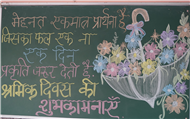 मेहनत एकमात्र प्रार्थना है
जिसका फल एक ना
एक दिन
प्रकृति जरूर देती है
श्रमिक दिवस की
शुभकामनाएँ